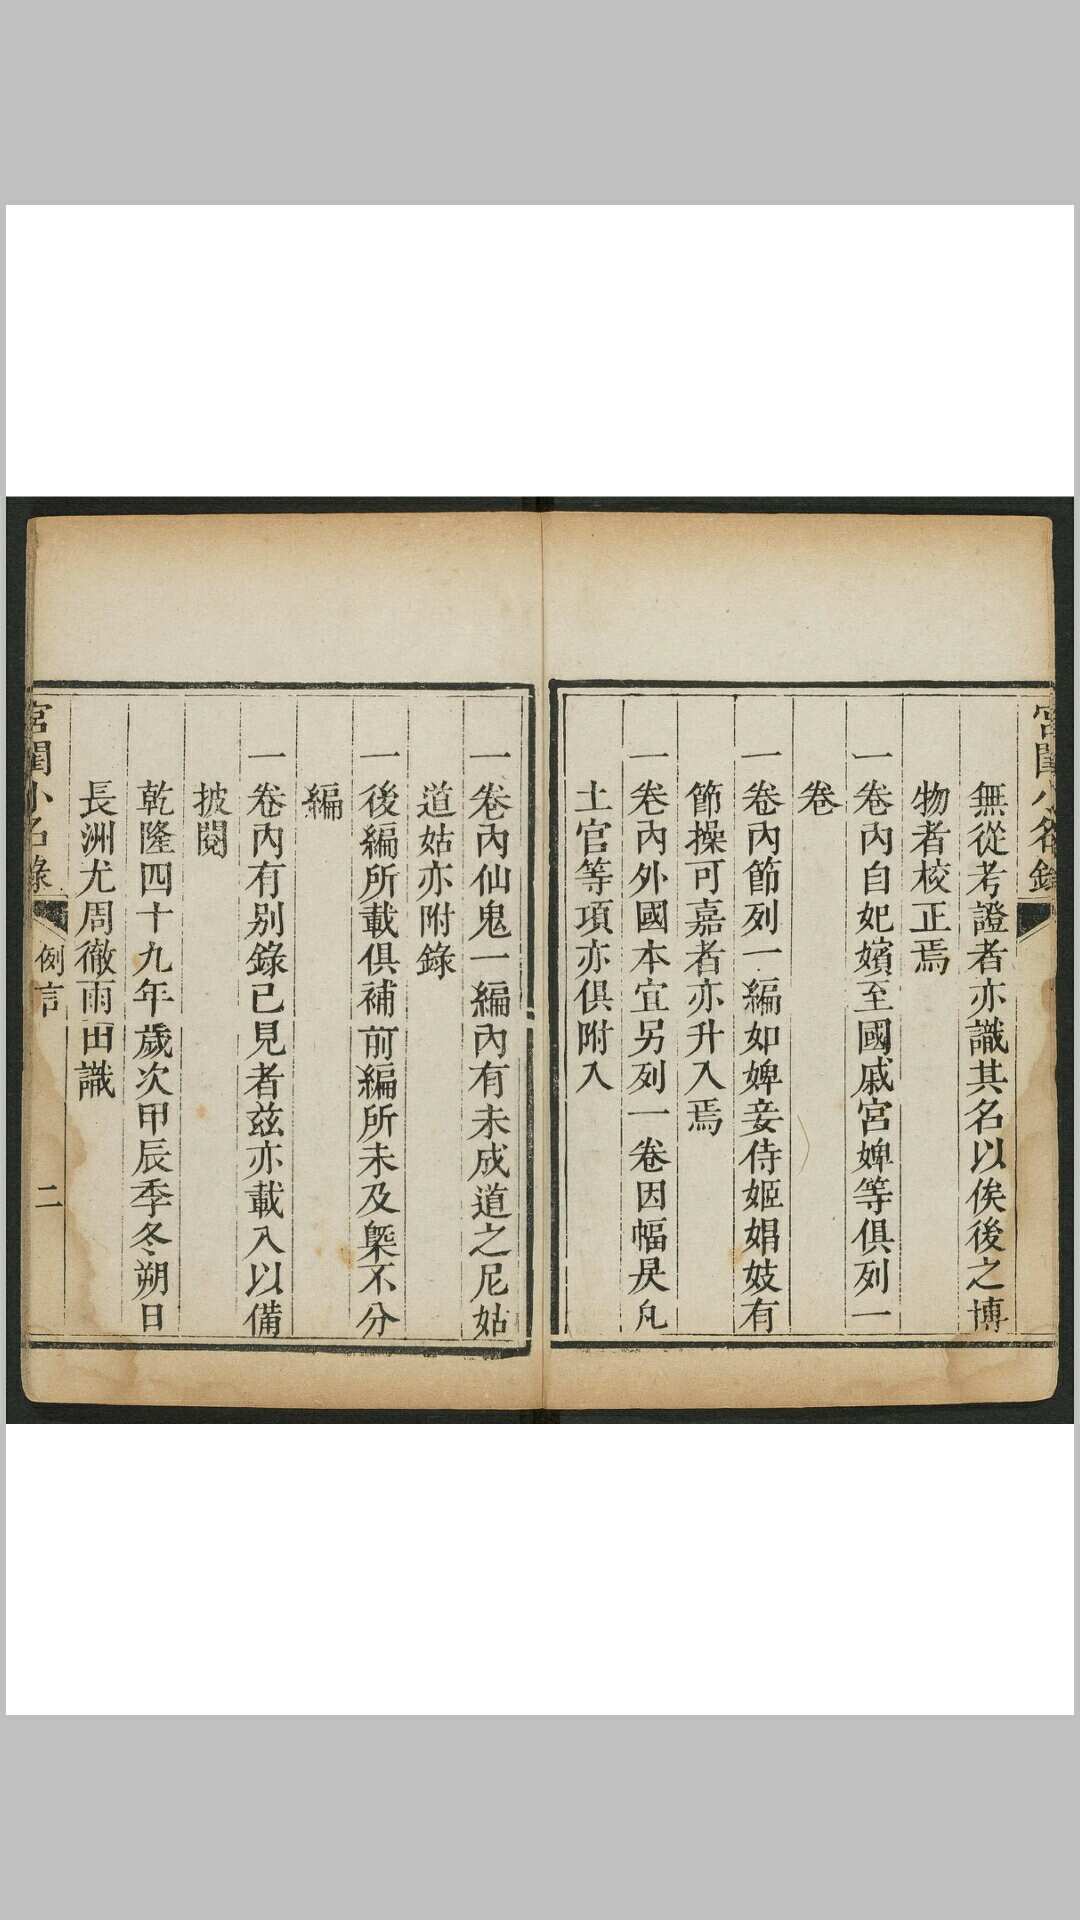 宮閨小名錄
無從考證者亦識其名以俟後之博
物者校正焉
一卷內自妃嬪至國戚宮婢等俱列一
卷
一卷內節列一編如婢妾侍姬娼妓有
節操可嘉者亦升入焉
一卷內外國本宜另列一卷因幅㞐凡
土官等項亦俱附入
一卷內仙鬼一編內有未成道之尼姑
道姑亦附錄
一後編所載俱補前編所未及槩不分
編
一卷內有別錄已見者茲亦載入以備
披閱
乾隆四十九年歲次甲辰季冬朔日
長洲尤周徹雨田識
宮閨小名錄 例言 二